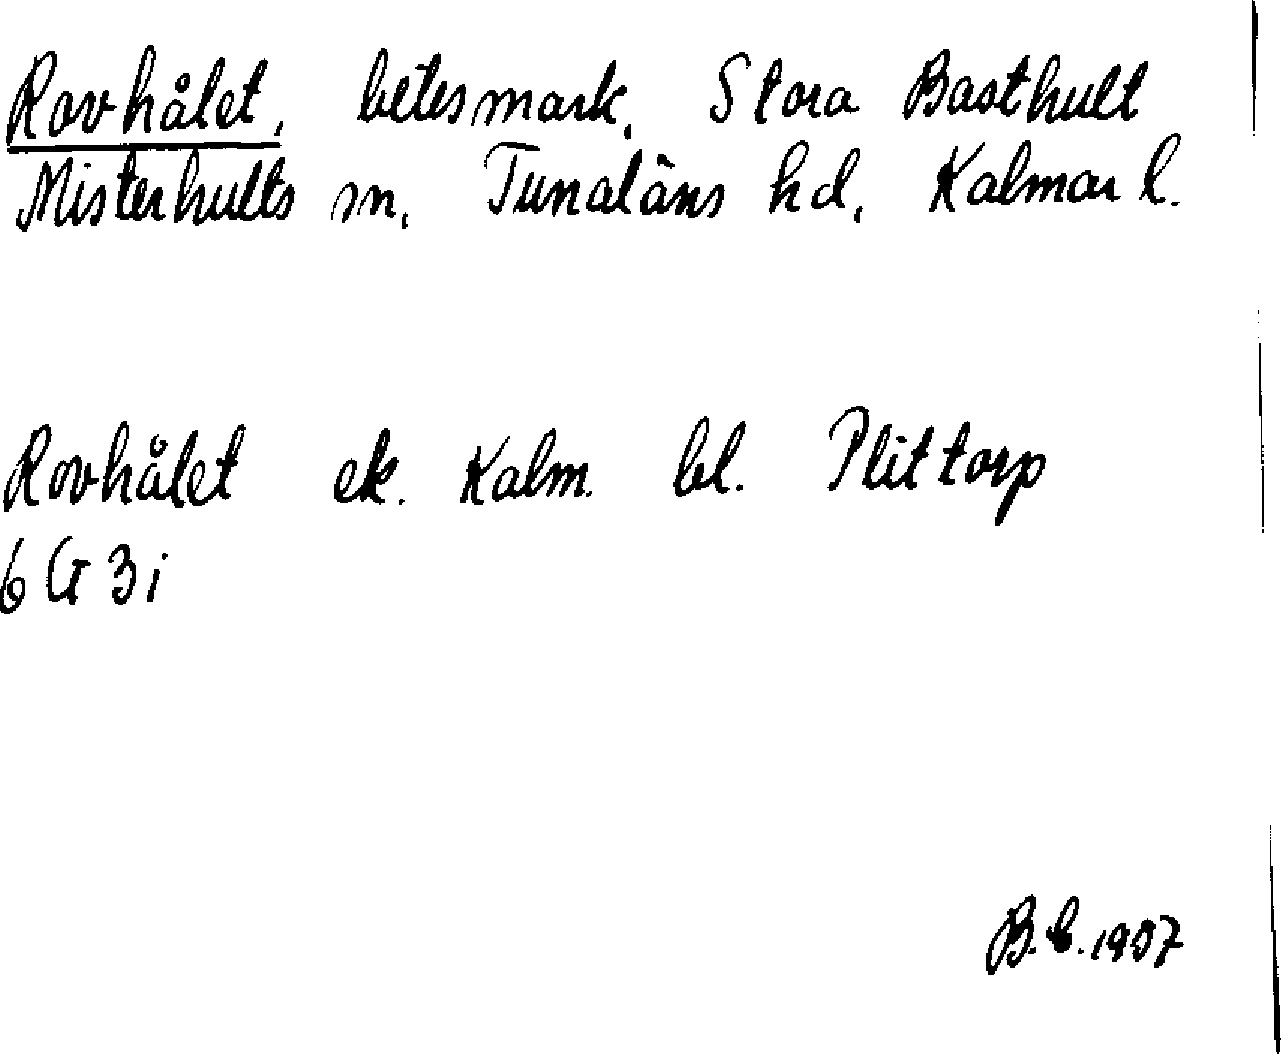 Rovhålet, betesmark, Stora Basthult
Misterhults sn, Tunaläns hd, Kalmar l.
Rovhålet ek. Kalm. bl. Plittorp
6 G 3 i
B. C. 1907